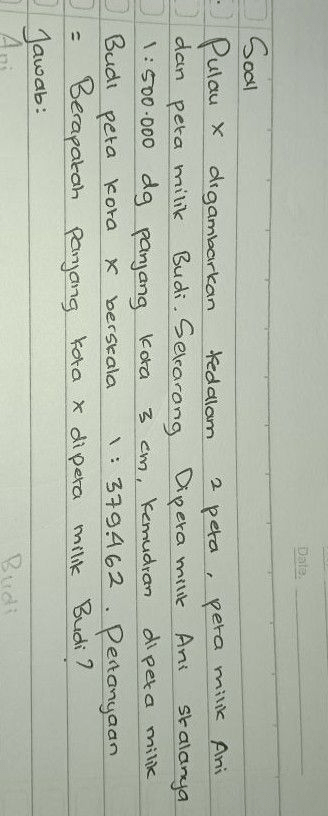 Date.
Soal
Pulau x digambarkan kedalam 2 peta, peta milik Ani
dan peta milik Budi. Sekarang Dipeta milik Ani skalanya
1:500.000 dg panjang kota 3 cm, kemudian dipeta milik
Budi peta kota x berskala 1:379.462. Pertanyaan
= Berapakah panjang kota x dipeta milik Budi?
Jawab:
Ani Budi